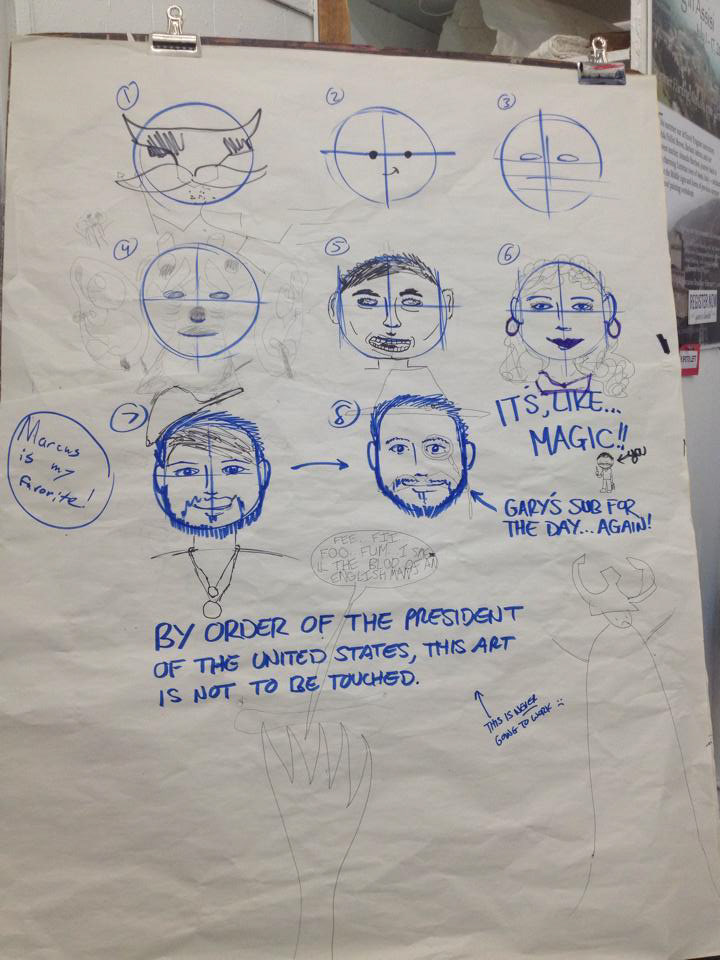 1
2
3
4
5
6
7
8
Marcus
is my
favorite!
IT'S, LIKE...
MAGIC!!
you
GARY'S SUB FOR
THE DAY... AGAIN!
FEE.. FII
FOO. FUM.. I
THE BLOD OF AN
ENGLISH MAN
BY ORDER OF THE PRESIDENT
OF THE UNITED STATES, THIS ART
IS NOT TO BE TOUCHED.
THIS IS NEVER
GOING TO WORK
Assisi
REGISTER NOW